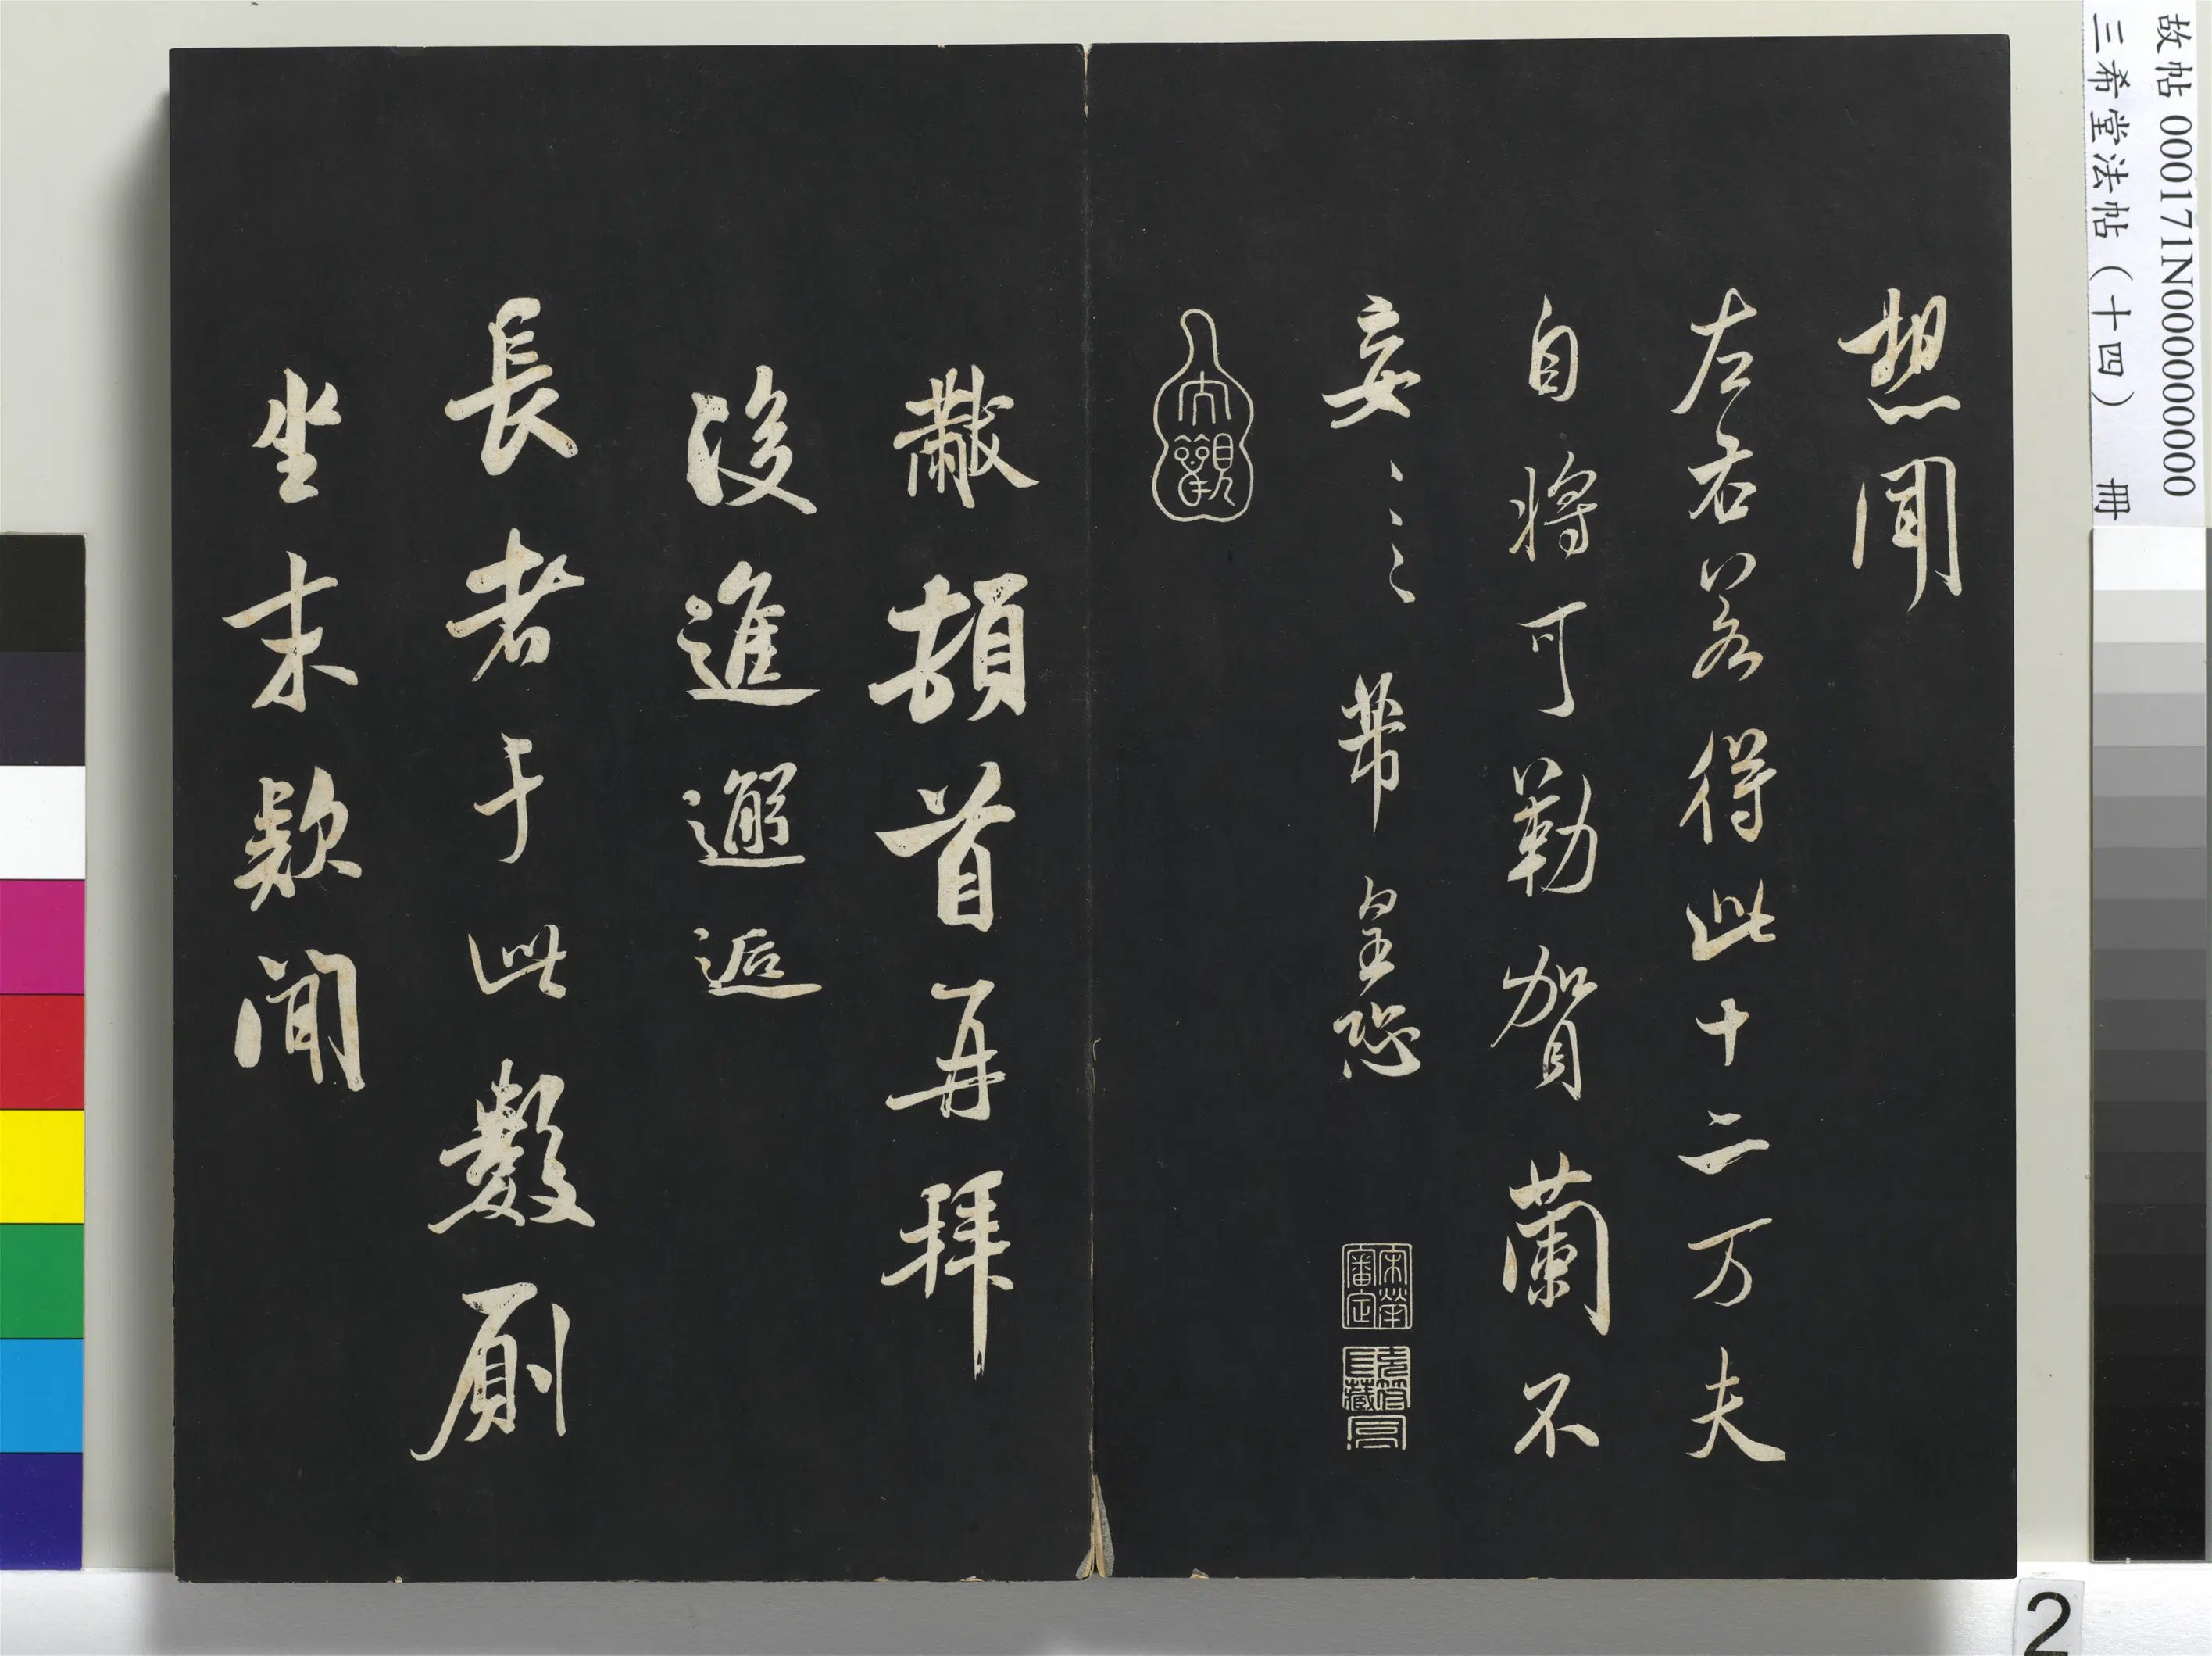 想聞
左右若得此十二万夫
自將可勒賀蘭不
妄〻〻 芾皇恐
大觀
宋犖審定
黻頓首再拜
後進邂逅
長者于此數廁
坐末款聞
故帖 000171N000000000
三希堂法帖（十四） 冊
2